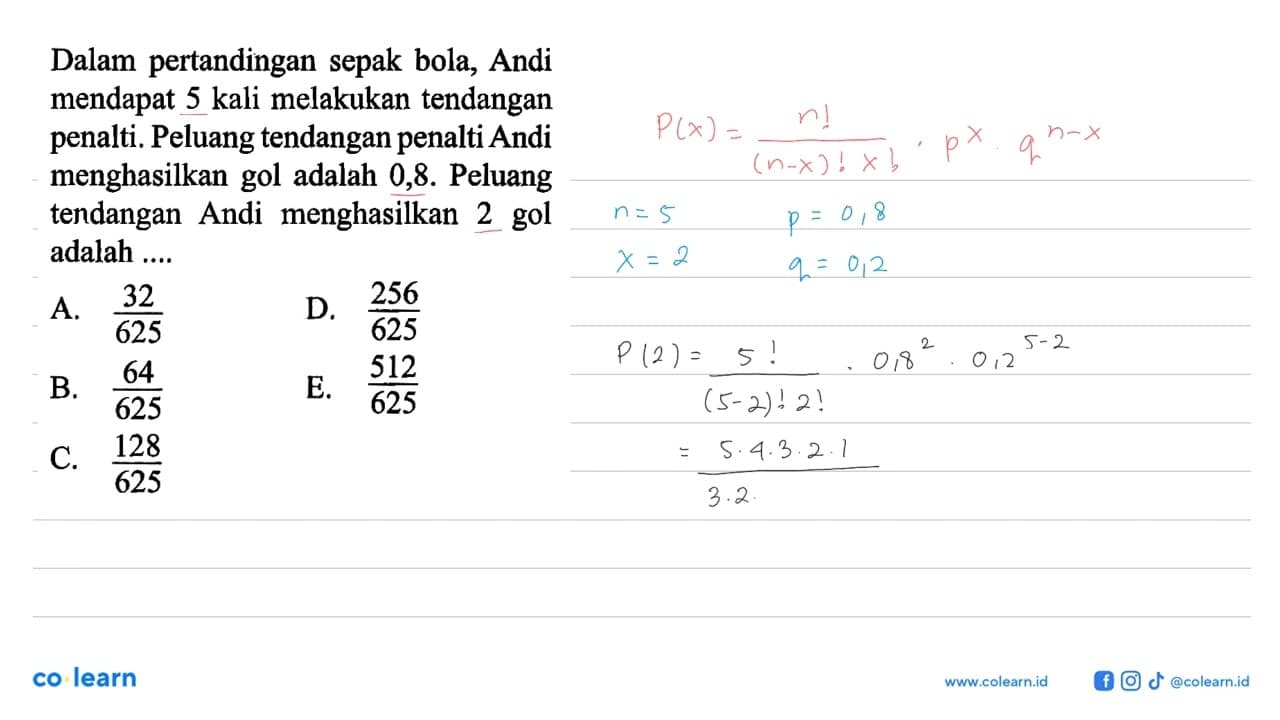 Dalam pertandingan sepak bola, Andi
mendapat 5 kali melakukan tendangan
penalti. Peluang tendangan penalti Andi
menghasilkan gol adalah 0,8. Peluang
tendangan Andi menghasilkan 2 gol
adalah ....
A. 32/625 D. 256/625
B. 64/625 E. 512/625
C. 128/625
P(x) = n!/((n-x)! x!) . p^x . q^(n-x)
n = 5 p = 0,8
x = 2 q = 0,2
P(2) = 5!/((5-2)! 2!) . 0,8^2 . 0,2^(5-2)
= 5.4.3.2.1
3.2.
co learn
www.colearn.id @colearn.id